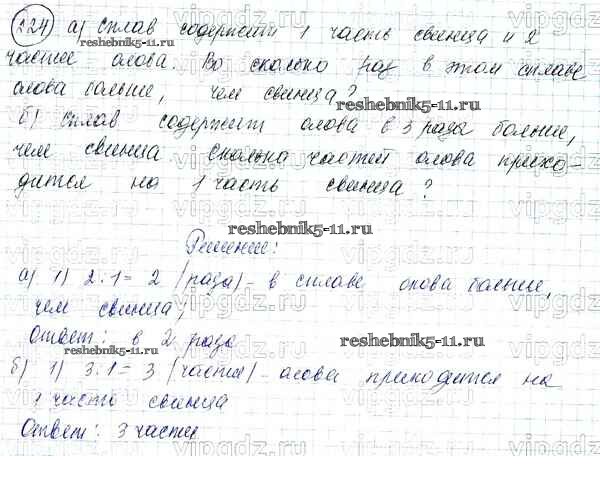 224 а) Сплав содержит 1 часть свинца и 2
части олова. Во сколько раз в этом сплаве
олова больше, чем свинца?
б) Сплав содержит олова в 3 раза больше,
чем свинца Сколько частей олова прихо-
дится на 1 часть свинца?
Решение:
а) 1) 2:1=2 (раза) – в сплаве олова больше,
чем свинца,
Ответ: в 2 раза
б) 1) 3:1=3 (части) – олова приходится на
1 часть свинца
Ответ: 3 части
reshebnik5-11.ru
reshebnik5-11.ru
reshebnik5-11.ru
reshebnik5-11.ru
reshebnik5-11.ru
vipgdz.ru